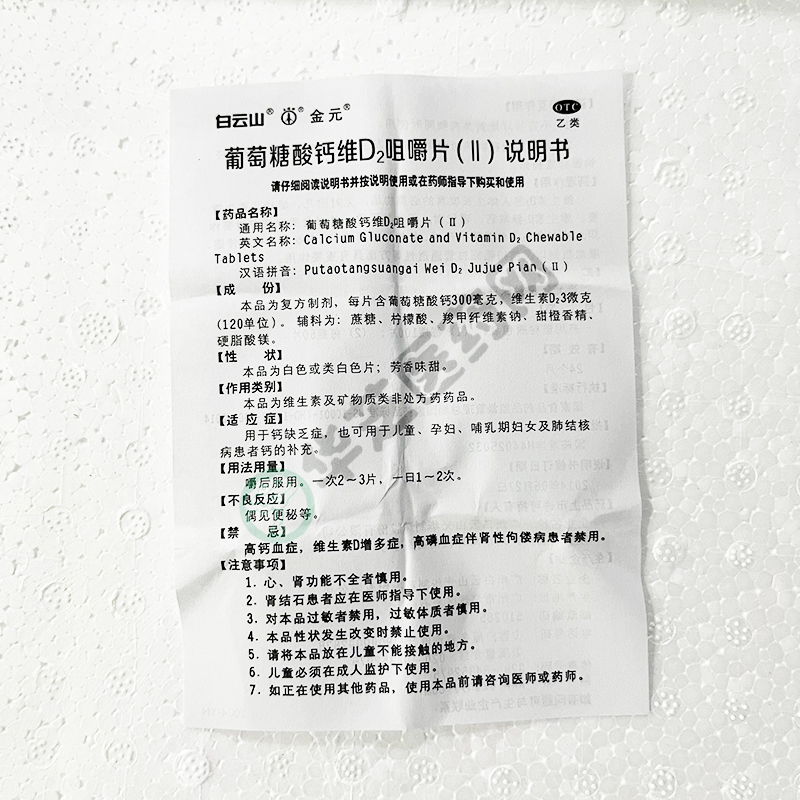 白云山® ® 金元®
OTC
乙类
葡萄糖酸钙维D₂咀嚼片(Ⅱ)说明书
请仔细阅读说明书并按说明使用或在药师指导下购买和使用
【药品名称】
通用名称:葡萄糖酸钙维D₂咀嚼片(Ⅱ)
英文名称:Calcium Gluconate and Vitamin D₂ Chewable
Tablets
汉语拼音:Putaotangsuangai Wei D₂ Jujue Pian(Ⅱ)
【成 份】
本品为复方制剂,每片含葡萄糖酸钙300毫克,维生素D₂3微克
(120单位)。辅料为:蔗糖、柠檬酸、羧甲纤维素钠、甜橙香精、
硬脂酸镁。
【性 状】
本品为白色或类白色片;芳香味甜。
【作用类别】
本品为维生素及矿物质类非处方药药品。
【适 应 症】
用于钙缺乏症,也可用于儿童、孕妇、哺乳期妇女及肺结核
病患者钙的补充。
【用法用量】
嚼后服用。一次2~3片,一日1~2次。
【不良反应】
偶见便秘等。
【禁 忌】
高钙血症,维生素D增多症,高磷血症伴肾性佝偻病患者禁用。
【注意事项】
1. 心、肾功能不全者慎用。
2. 肾结石患者应在医师指导下使用。
3. 对本品过敏者禁用,过敏体质者慎用。
4. 本品性状发生改变时禁止使用。
5. 请将本品放在儿童不能接触的地方。
6. 儿童必须在成人监护下使用。
7. 如正在使用其他药品,使用本品前请咨询医师或药师。